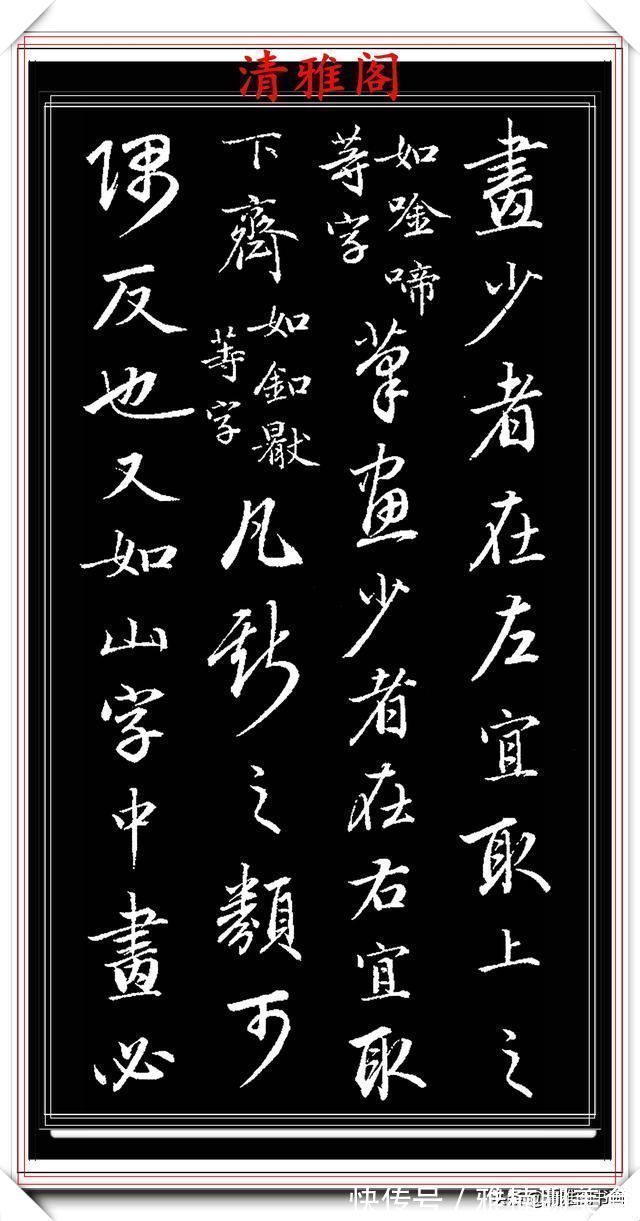 清雅阁
畫少者在左宜取上之
如唫啼
等字
筆畫少者在右宜取
下齊
如釦
等字
凡斯之類可
隅反也又如山字中畫必
快传号 /